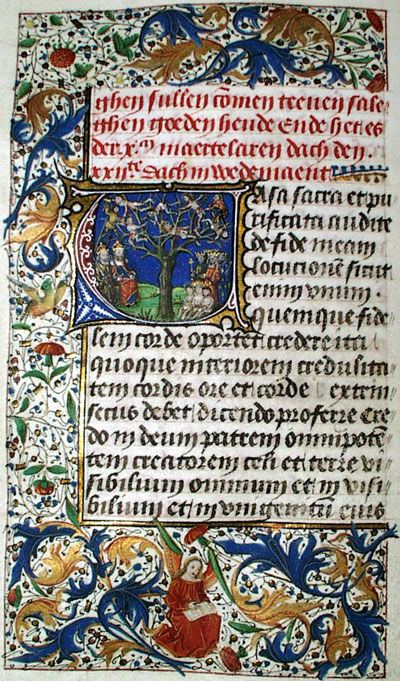 ghen sullen cōmen teenen sale
ghen goeden hende Ende het es
der .x.m maertelaren dach den
xxijte dach in wedemaent
Vasa sacra et pu
rificata audite
de fide meam
locutionē sicut
enim unum
quemque fide
lem corde oportet credere ita
quoque interiorem credulita
tem cordis ore et corde extrin
secus debet dicendo proferre cre
do in deum patrem omnipotē
tem creatorem celi et terre vi
sibilium omnium et in visi
bilium et in unigenitū eius